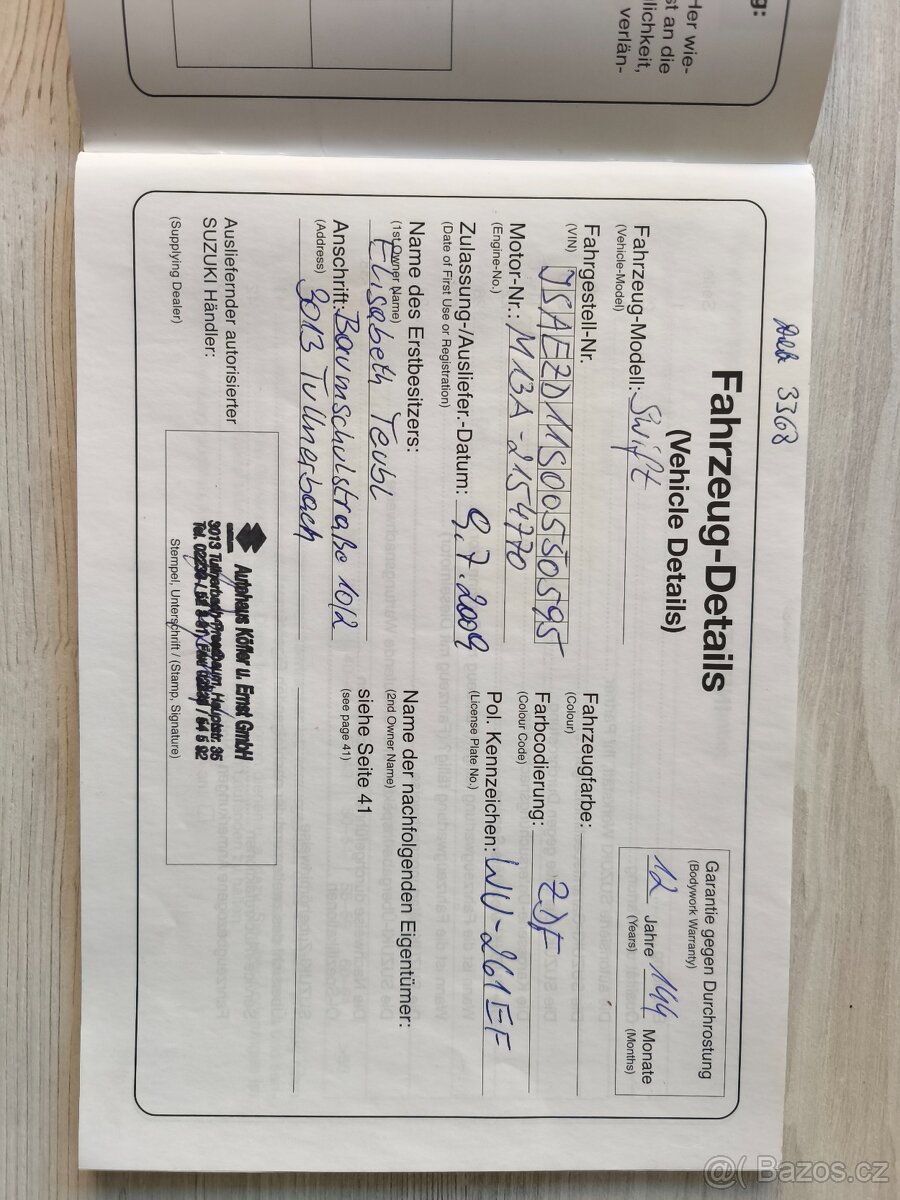 g:
Her wie-
st an die
llichkeit,
verlän-
3368
Fahrzeug-Details
(Vehicle Details)
Garantie gegen Durchrostung
(Bodywork Warranty)
12 Jahre 144 Monate
(Years) (Months)
Fahrzeug-Modell: Swift
(Vehicle-Model)
Fahrgestell-Nr.
(VIN) JSAEZD11S00550595
Motor-Nr.: M13A-2154770
(Engine-No.)
Zulassung-/Ausliefer.-Datum: 9.7.2009
(Date of First Use or Registration)
Name des Erstbesitzers:
(1st Owner Name)
Elisabeth Teubl
Anschrift: Baumschulstraße 10/2
(Address) 3013 Tullnerbach
Fahrzeugfarbe:
(Colour)
Farbcodierung: ZDF
(Colour Code)
Pol. Kennzeichen: WU-261EF
(License Plate No.)
Name der nachfolgenden Eigentümer:
(2nd Owner Name)
siehe Seite 41
(see page 41)
Ausliefernder autorisierter
SUZUKI Händler:
(Supplying Dealer)
Autohaus Köfler u. Ernst GmbH
3013 Tullnerbach-Pressbaum, Hauptstr. 35
Stempel, Unterschrift / (Stamp, Signature)
@( Bazos.cz